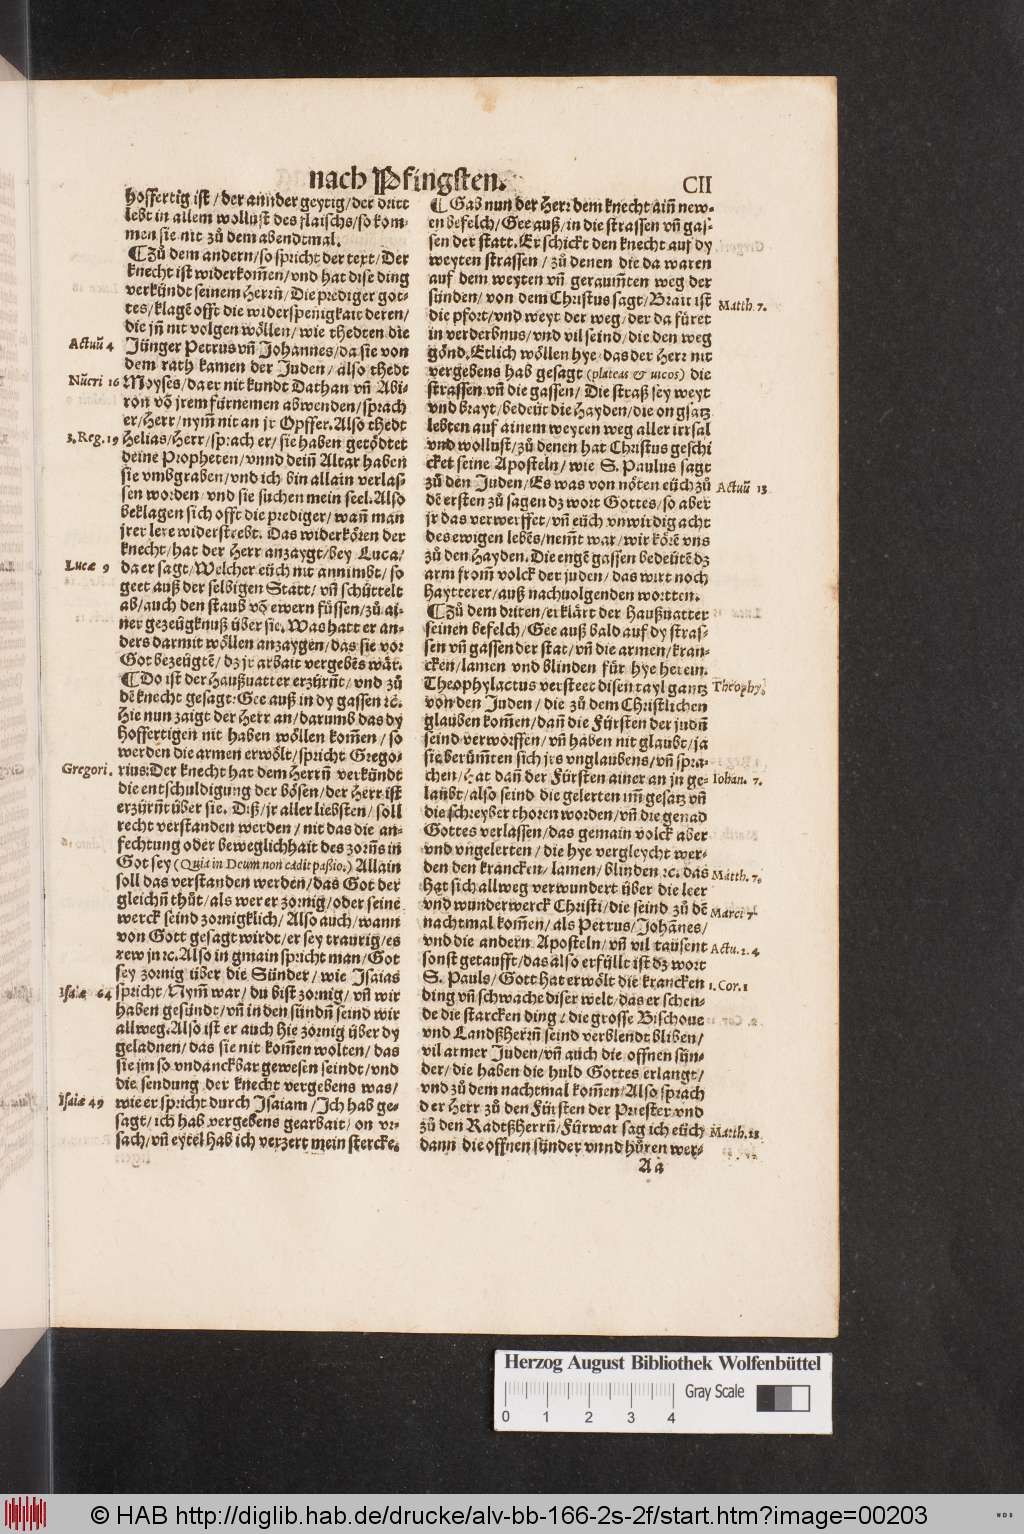 nach Pfingsten.
CII
hoffertig ist / der annder geytig / der dritt
lebt in allem wollust des flaischs / so kom-
men sie nit zů dem abendtmal.
¶ Zů dem andern / so spricht der text / Der
knecht ist widerkom̃en / vnd hat dise ding
verkündt seinem Herrñ / Die prediger got-
tes / klagẽ offt die widerspenigkait deren /
die jñ nit volgen wöllen / wie thedten die
Actuũ 4
Jünger Petrus vñ Johannes / da sie von
dem rath kamen der Juden / also thedt
Nũeri 16
Moyses / da er nit kundt Dathan vñ Abi-
ron võ jrem fürnemen abwenden / sprach
er / Herr / nym̃ nit an jr Opffer. Also thedt
3. Reg. 19
Helias / Herr / sprach er / sie haben getödtet
deine Propheten / vnnd deiñ Altar haben
sie vmbgraben / vnd ich bin allain verlas-
sen worden / vnd sie suchen mein seel. Also
beklagen sich offt die prediger / wañ man
jrer lere widerstrebt. Das widerkören der
knecht / hat der Herr anzaygt / bey Luca /
Lucæ 9
da er sagt / Welcher eüch nit annimbt / so
geet auß der selbigen Statt / vñ schüttelt
ab / auch den staub võ ewern füssen / zů ai-
ner gezeügknuß über sie. Was hatt er an-
ders darmit wöllen anzaygen / das sie vor
Got bezeügtẽ / dz jr arbait vergebẽs wär.
¶ Do ist der Haußuatter erzürñt / vnd zů
dẽ knecht gesagt: Gee auß in dy gassen ꝛc.
Hie nun zaigt der Herr an / darumb das dy
hoffertigen nit haben wöllen kom̃en / so
werden die armen erwölt / spricht Grego-
Gregori.
rius: Der knecht hat dem Herrñ verkündt
die entschuldigung der bösen / der Herr ist
erzürñt über sie. Diß / jr aller liebsten / soll
recht verstanden werden / nit das die an-
fechtung oder beweglichhait des zorñs in
Got sey (Quia in Deum non cadit passio:) Allain
soll das verstanden werden / das Got der
gleichñ thůt / als wer er zornig / oder seine
werck seind zornigklich / Also auch / wann
von Gott gesagt wirdt / er sey traurig / es
rew jn ꝛc. Also in gmain spricht man / Got
sey zornig über die Sünder / wie Isaias
Isaiæ 64
spricht / Nym̃ war / du bist zornig / vñ wir
haben gesündt / vñ in den sündñ seind wir
allweg. Also ist er auch hie zornig über dy
geladnen / das sie nit kom̃en wolten / das
sie jm so vndanckbar gewesen seindt / vnd
die sendung der knecht vergebens was /
Isaiæ 49
wie er spricht durch Isaiam / Ich hab ge-
sagt / ich hab vergebens gearbait / on vr-
sach / vñ eytel hab ich verzert mein stercke.
¶ Gab nun der Herr dem knecht aiñ new-
en befelch / Gee auß / in die strassen vñ gas-
sen der statt. Er schickt den knecht auf dy
weyten strassen / zů denen die da waren
auf dem weyten vñ geraum̃ten weg der
sünden / von dem Christus sagt / Brait ist
Matth. 7.
die pfort / vnd weyt der weg / der da füret
in verderbnus / vnd vil seind / die den weg
gönd. Etlich wöllen hye / das der Herr nit
vergebens hab gesagt (plateas & uicos) die
strassen vñ die gassen / Die straß sey weyt
vnd brayt / bedeüt die Hayden / die on gsatz
lebten auf ainem weyten weg aller irrsal
vnd wollust / zů denen hat Christus geschi
cket seine Aposteln / wie S. Paulus sagt
zů den Juden / Es was von nöten eüch zů
Actuũ 13
dẽ ersten zů sagen dz wort Gottes / so aber
jr das verwerffet / vñ eüch vnwirdig acht
des ewigen lebẽs / nem̃t war / wir körẽ vns
zů den Hayden. Die engẽ gassen bedeütẽ dz
arm from̃ volck der juden / das wirt noch
haytterer / auß nachuolgenden wortten.
¶ Zů dem driten / erklärt der Haußuatter
seinen befelch / Gee auß bald auf dy stras-
sen vñ gassen der stat / vñ die armen / kran-
cken / lamen vnd blinden für hye herein.
Theophylactus versteet disen tayl gantz
Theophy.
von den Juden / die zů dem Christlichen
glauben kom̃en / dañ die Fürsten der judñ
seind verworffen / vñ haben nit glaubt / ja
sie berům̃ten sich jrs vnglaubens / vñ spra-
chen / Hat dañ der Fürsten ainer an jn ge-
Iohan. 7.
laubt / also seind die gelerten im̃ gesatz vñ
die schreyber thoren worden / vñ die genad
Gottes verlassen / das gemain volck aber
vnd vngelerten / die hye vergleycht wer-
den den krancken / lamen / blinden ꝛc. das
Matth. 7.
hat sich allweg verwundert über die leer
vnd wunderwerck Christi / die seind zů dẽ
Marci 7
nachtmal kom̃en / als Petrus / Johanes /
vnd die andern Aposteln / vñ vil tausent
Actu. 2. 4
sonst getaufft / das also erfüllt ist dz wort
S. Pauls / Gott hat erwölt die krancken
1. Cor. 1
ding vñ schwache diser welt / das er schen-
de die starcken ding / die grosse Bischoue
vnd Landßherrñ seind verblendt bliben /
vil armer Juden / vñ auch die offnen sün-
der / die haben die huld Gottes erlangt /
vnd zů dem nachtmal kom̃en / Also sprach
der Herr zů den Fürsten der Priester vnd
zů den Radtßherrñ / Fürwar sag ich eüch
Matth. 21
dann die offnen sünder vnnd hůren wer-
Aa
Herzog August Bibliothek Wolfenbüttel
Gray Scale
0 1 2 3 4
© HAB http://diglib.hab.de/drucke/alv-bb-166-2s-2f/start.htm?image=00203